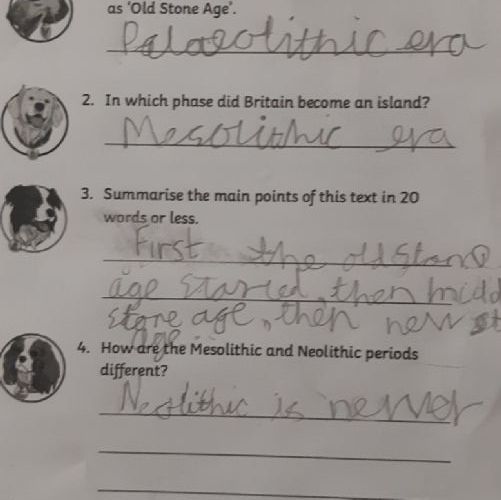 as 'Old Stone Age'.
Palaeolithic era
2. In which phase did Britain become an island?
Mesolithic era
3. Summarise the main points of this text in 20
words or less.
First the old Stone
age Started, then midd
stone age, then new st
age.
4. How are the Mesolithic and Neolithic periods
different?
Neolithic is newer